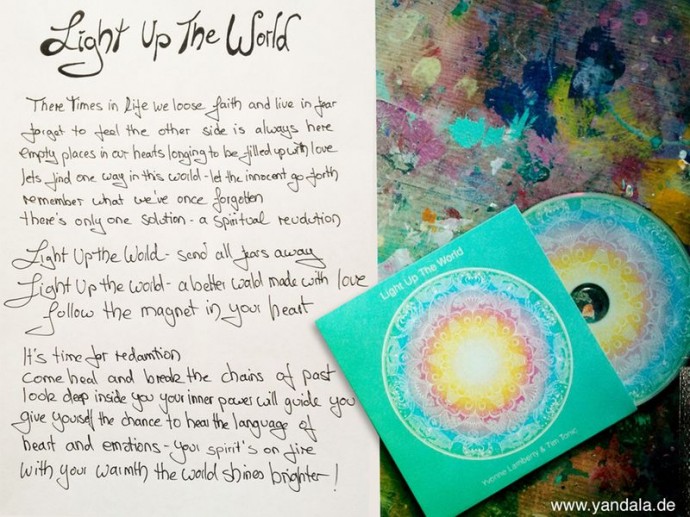 Light Up The World
There Times in life we loose faith and live in fear
forgot to feel the other side is always here
empty places in our heats longing to be filled up with love
lets find one way in this world - let the innocent go forth
remember what we've once forgotten
there's only one solution - a spiritual revolution
Light Up the World - send all fears away
Light Up the world - a better world made with love
follow the magnet in your heart
It's time for redamtion
come heal and break the chains of past
look deep inside you your inner power will guide you
give yourself the chance to hear the language of
heart and emotions - your spirit's on fire
with your warmth the world shines brighter!
Light Up The World
Yvonne Lamberty & Tim Tonic
www.yandala.de